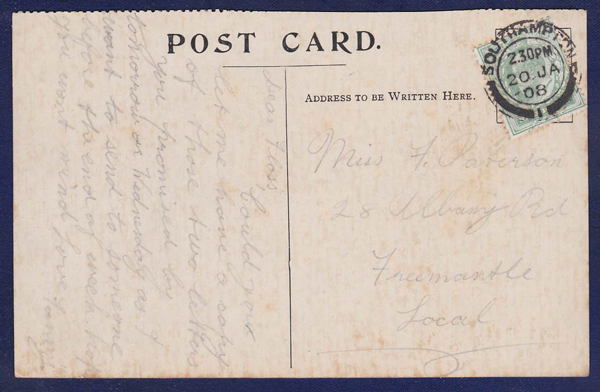 POST CARD.
ADDRESS TO BE WRITTEN HERE.
SOUTHAMPTON
2.30PM
20. JA
08
1
Dear Floss,
Could you
let me have a copy
of those two letters
you promised by
tomorrow or Wednsday as I
want to send to someone
before the end of week hope
you wont mind love
Miss F.
28 Albany Rd
Freemantle
Local